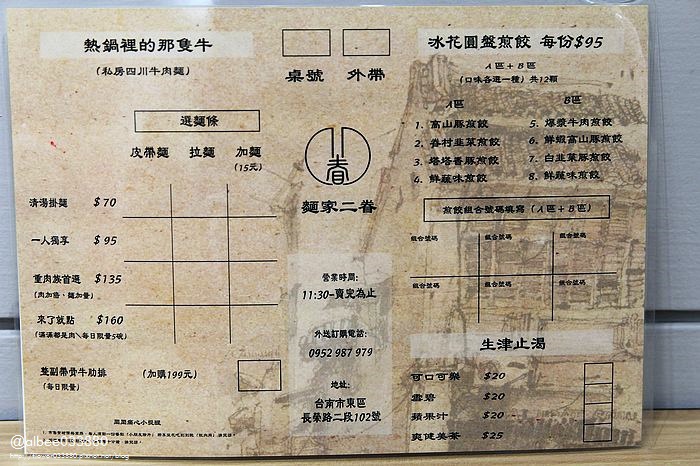 熱鍋裡的那隻牛
(私房四川牛肉麵)
選麵條
皮帶麵 拉麵 加麵
(15元)
清湯掛麵 $70
一人獨享 $95
重肉族首選 $135
(肉加倍、麵加量)
來了就點 $160
(滿滿都是肉\每日限量5碗)
整副帶骨牛肋排 (加購199元)
(每日限量)
桌號 外帶
麵家二眷
營業時間:
11:30-賣完為止
外送訂購電話:
0952 987 979
地址:
台南市東區
長榮路二段102號
冰花圓盤煎餃 每份$95
A區+B區
(口味各選一種) 共12顆
A區 B區
1. 高山豚煎餃 5. 爆漿牛肉煎餃
2. 眷村韭菜煎餃 6. 鮮蝦高山豚煎餃
3. 塔塔香豚煎餃 7. 白韭菜豚煎餃
4. 鮮蔬味煎餃 8. 鮮蔬味煎餃
煎餃組合號碼填寫 (A區+B區)
組合號碼 組合號碼 組合號碼
組合號碼 組合號碼 組合號碼
生津止渴
可口可樂 $20
雪碧 $20
蘋果汁 $20
爽健美茶 $25